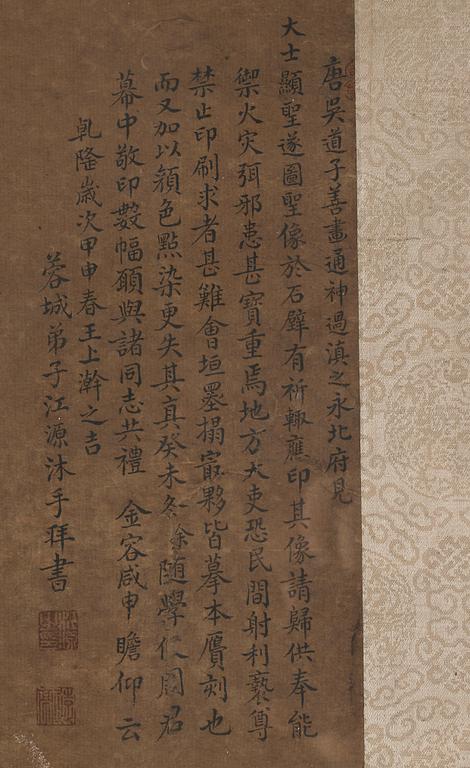 唐吳道子善畫通神過滇之永北府見
大士顯聖遂圖聖像於石壁有祈輙應印其像請歸供奉能
禦火灾弭邪患甚寶重焉地方大吏恐民間射利褻尊
禁止印刷求者甚難會垣墨搨㝡夥皆摹本贋刻也
而又加以顏色點染更失其真癸未冬余随學仁周君
幕中敬印數幅願與諸同志共禮 金容咸申 瞻仰云
乹隆嵗次甲申春王上澣之吉
蓉城弟子江源沐手拜書